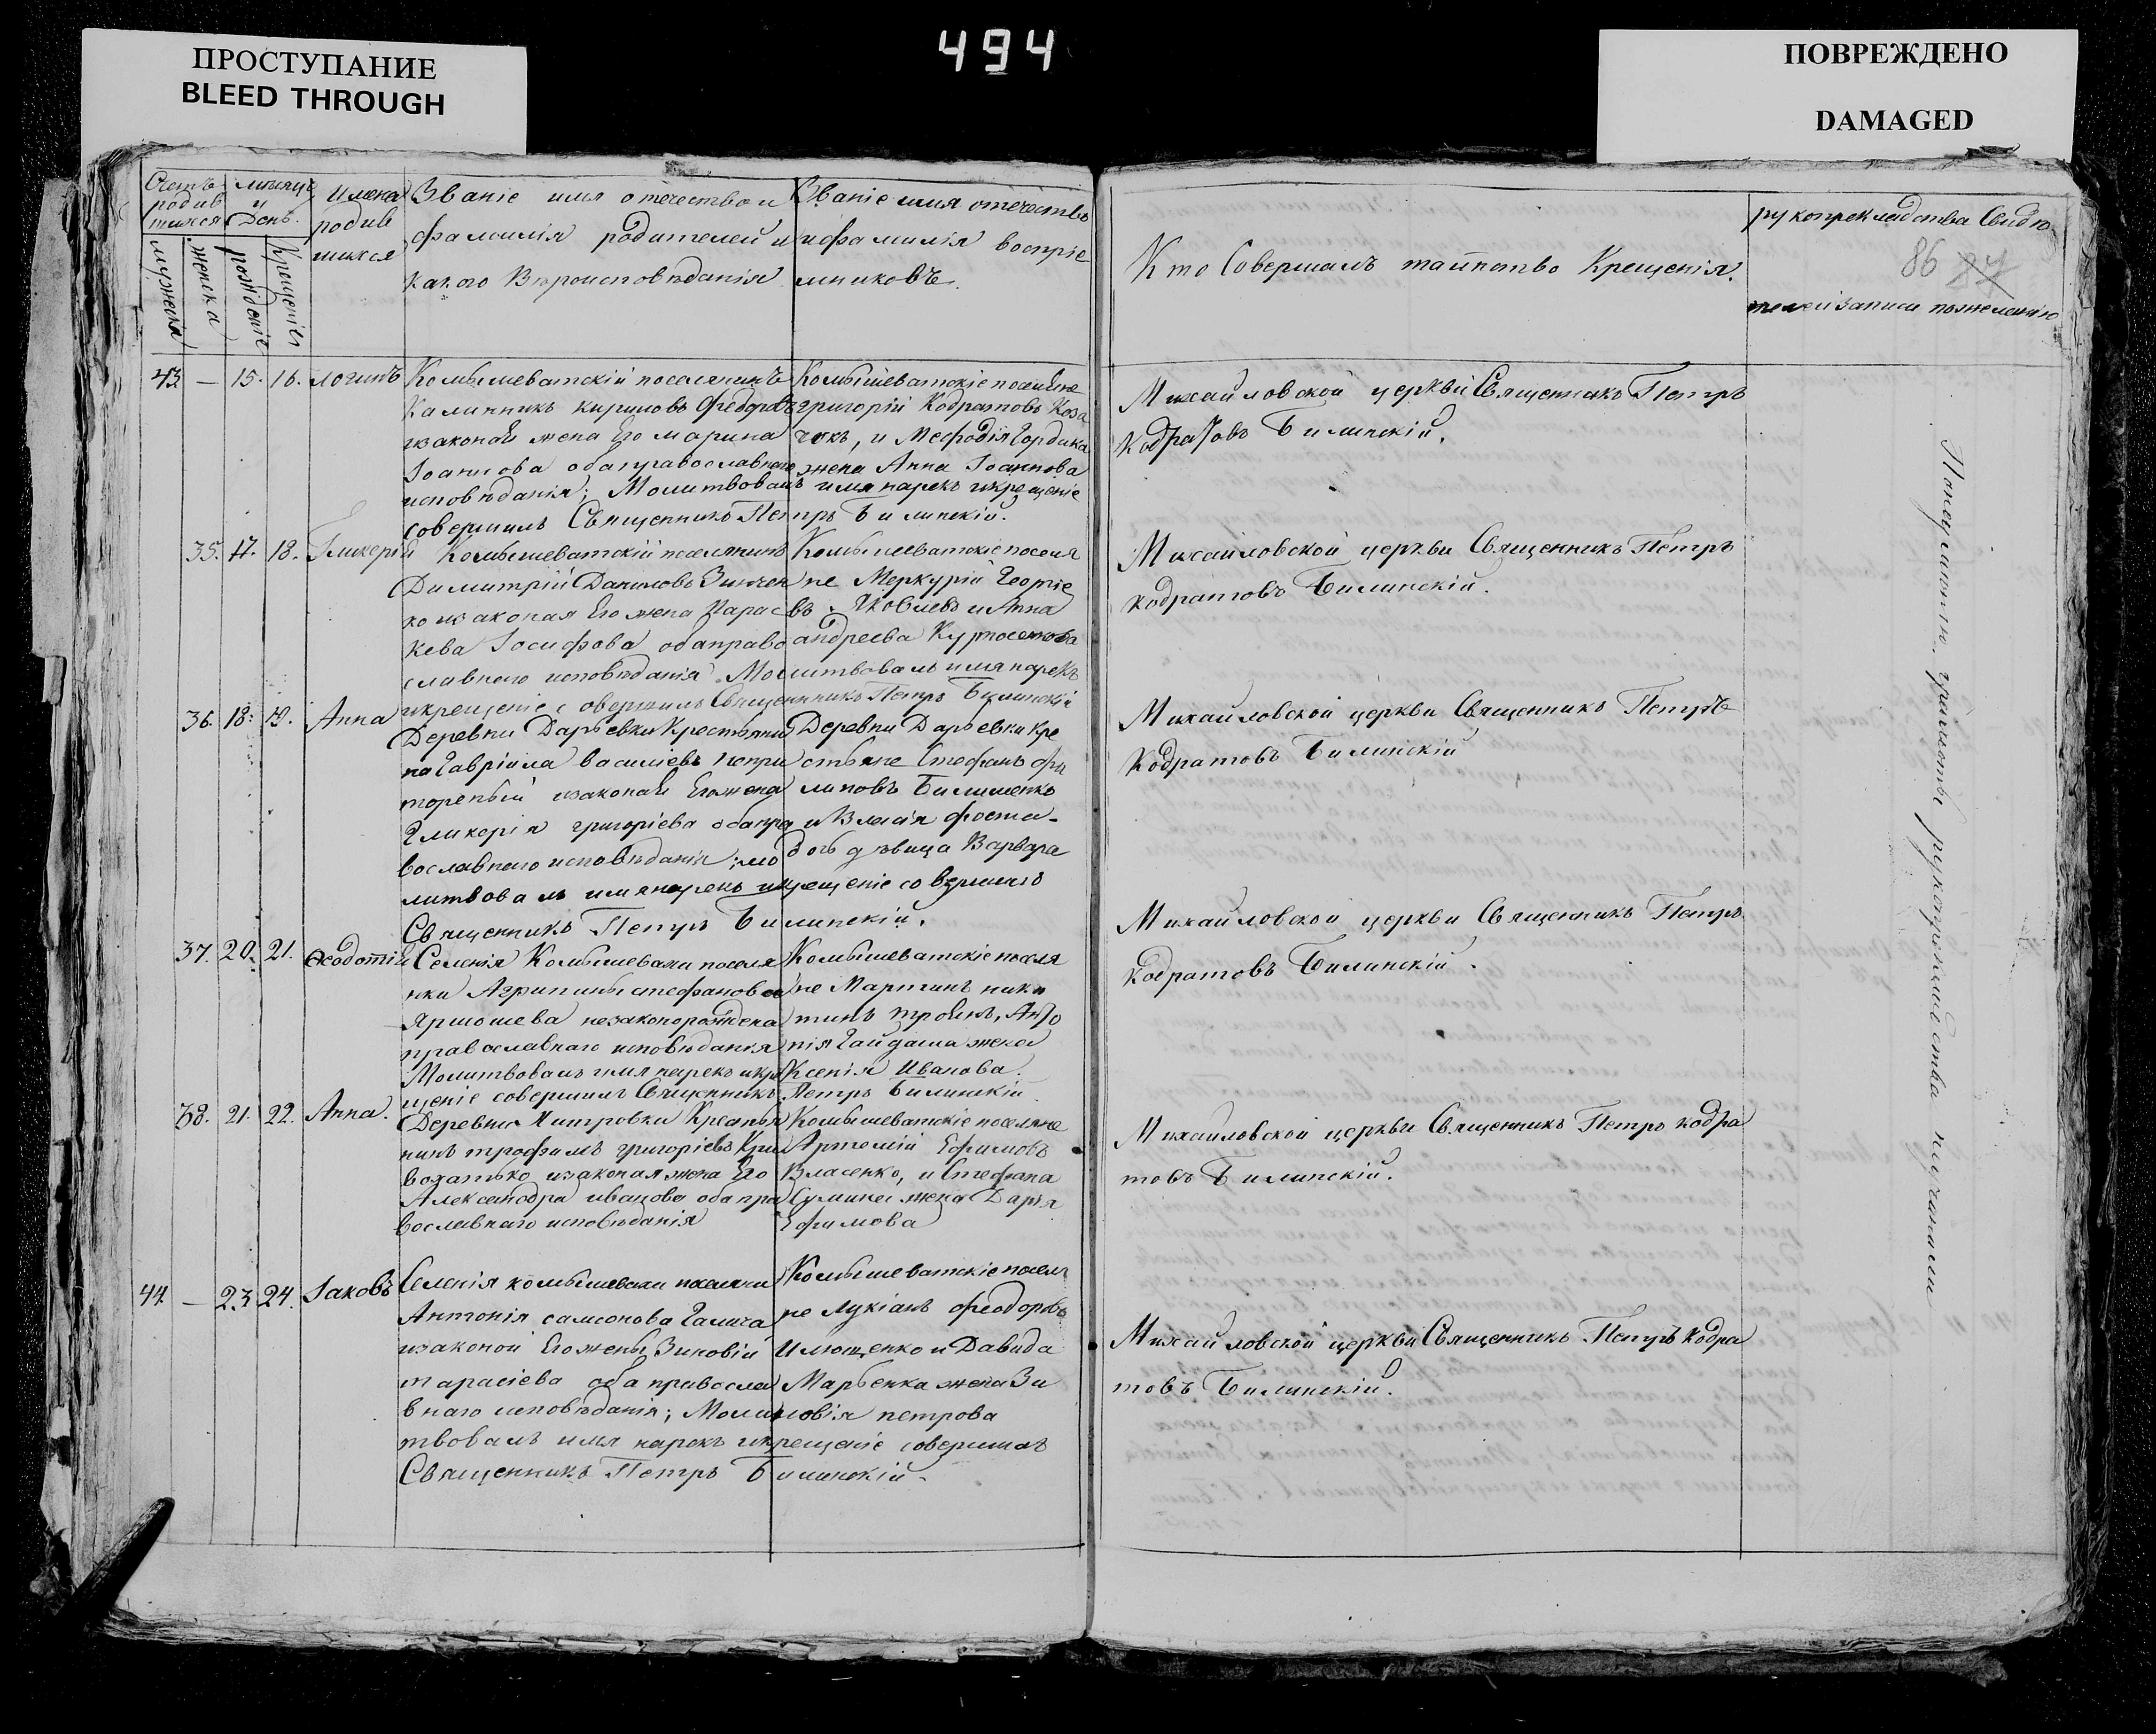 494
ПРОСТУПАНИЕ
BLEED THROUGH
ПОВРЕЖДЕНО
DAMAGED
Счетъ родив шихся
мѣсяцъ и День.
Имена родив шихся
Званіе имя отечество и фамилія родителей и какого Вѣроисповѣданія
Званіе имя отечество и фамилія воспріе мниковъ.
Кто Совершалъ таинство Крещенія.
рукоприкладства Свидѣ
86 87
телей записи по желанію
мужеска
женска
рожденіе
Крещеніе
43. — 15. 16. логинъ
Комышеватскій поселянинъ
Калинникъ кириловъ Федоровъ
законая жена Его марина
Іоаннова оба православнаго
исповѣданія; Молитвовалъ имя нарекъ и крещеніе
совершилъ Священникъ Петръ Билинскій.
Комышеватскіе поселяне
григорій Кодратовъ Коза
чекъ, и Мефодія Гордика
жена Анна Іоаннова
Михайловской церкви Священникъ Петръ
Кодратовъ Билинскій.
35. 17. 18. Гликерія
Комышеватскій поселянинъ
Димитрій Даниловъ Зинчен
ко изаконая Его жена Парас
кева Іосифова оба право
славнаго исповѣданія Молитвовалъ имя нарекъ
и крещеніе совершилъ Священникъ Петръ Билинскій
Комышеватскіе поселя
не Меркурій Георгіе
въ Яковлевъ и Анна
андреева
Михайловской церкви Священникъ Петръ
кодратовъ Билинскій.
36. 18. 19. Анна
Деревни Дарьевки Крестьяни
на Гавріила василіевъ непри
тореный изаконая Его жена
Гликерія григоріева оба пра
вославнаго исповѣданія; мо
литвовалъ имя нарекъ и крещеніе совершилъ
Священникъ Петръ Билинскій.
Деревни Дарьевки кре
стьяне Стефанъ фи
липовъ Билименко
и Власія
дочь дѣвица Варвара
Михайловской церкви Священникъ Петръ
Кодратовъ Билинскій
37. 20. 21. Феодотія
Селенія Комышевахи поселя
нки Агрипины стефановой
Ярмошева незаконорождена
православнаго исповѣданія
Молитвовалъ имя нарекъ и кре
щеніе совершилъ Священникъ Петръ Билинскій
Комышеватскіе поселя
не Мартинъ ники
тинъ троянъ, Анто
нія Гайдаша жена
Ксенія Иванова.
Михайловской церкви Священникъ Петръ
кодратовъ Билинскій.
38. 21. 22. Анна.
Деревни Хитровки Крестья
нинъ трофимъ григоріевъ Кри
вохатько изаконая жена Его
Александра иванова оба пра
вославнаго исповѣданія
Комышеватскіе поселяне
Артемій Ефимовъ
Власенко, и Стефана
жена Дарія
Ефимова
Михайловской церкви Священникъ Петръ кодра
товъ Билинскій.
44. — 23. 24. Іаковъ
Селенія комышевахи поселяни
Антонія самсонова Галича
изаконой Его жены Зиновіи
тарасіева оба православ
внаго исповѣданія; Моли
твовалъ имя нарекъ и крещеніе совершилъ
Священникъ Петръ Билинскій.
Комышеватскіе поселя
не Лукіанъ феодоровъ
Илющенко и Давида
Марьенка жена Зи
новія петрова
Михайловской церкви Священникъ Петръ кодра
товъ Билинскій.
По неуменію грамоты рукоприкладства не учинили